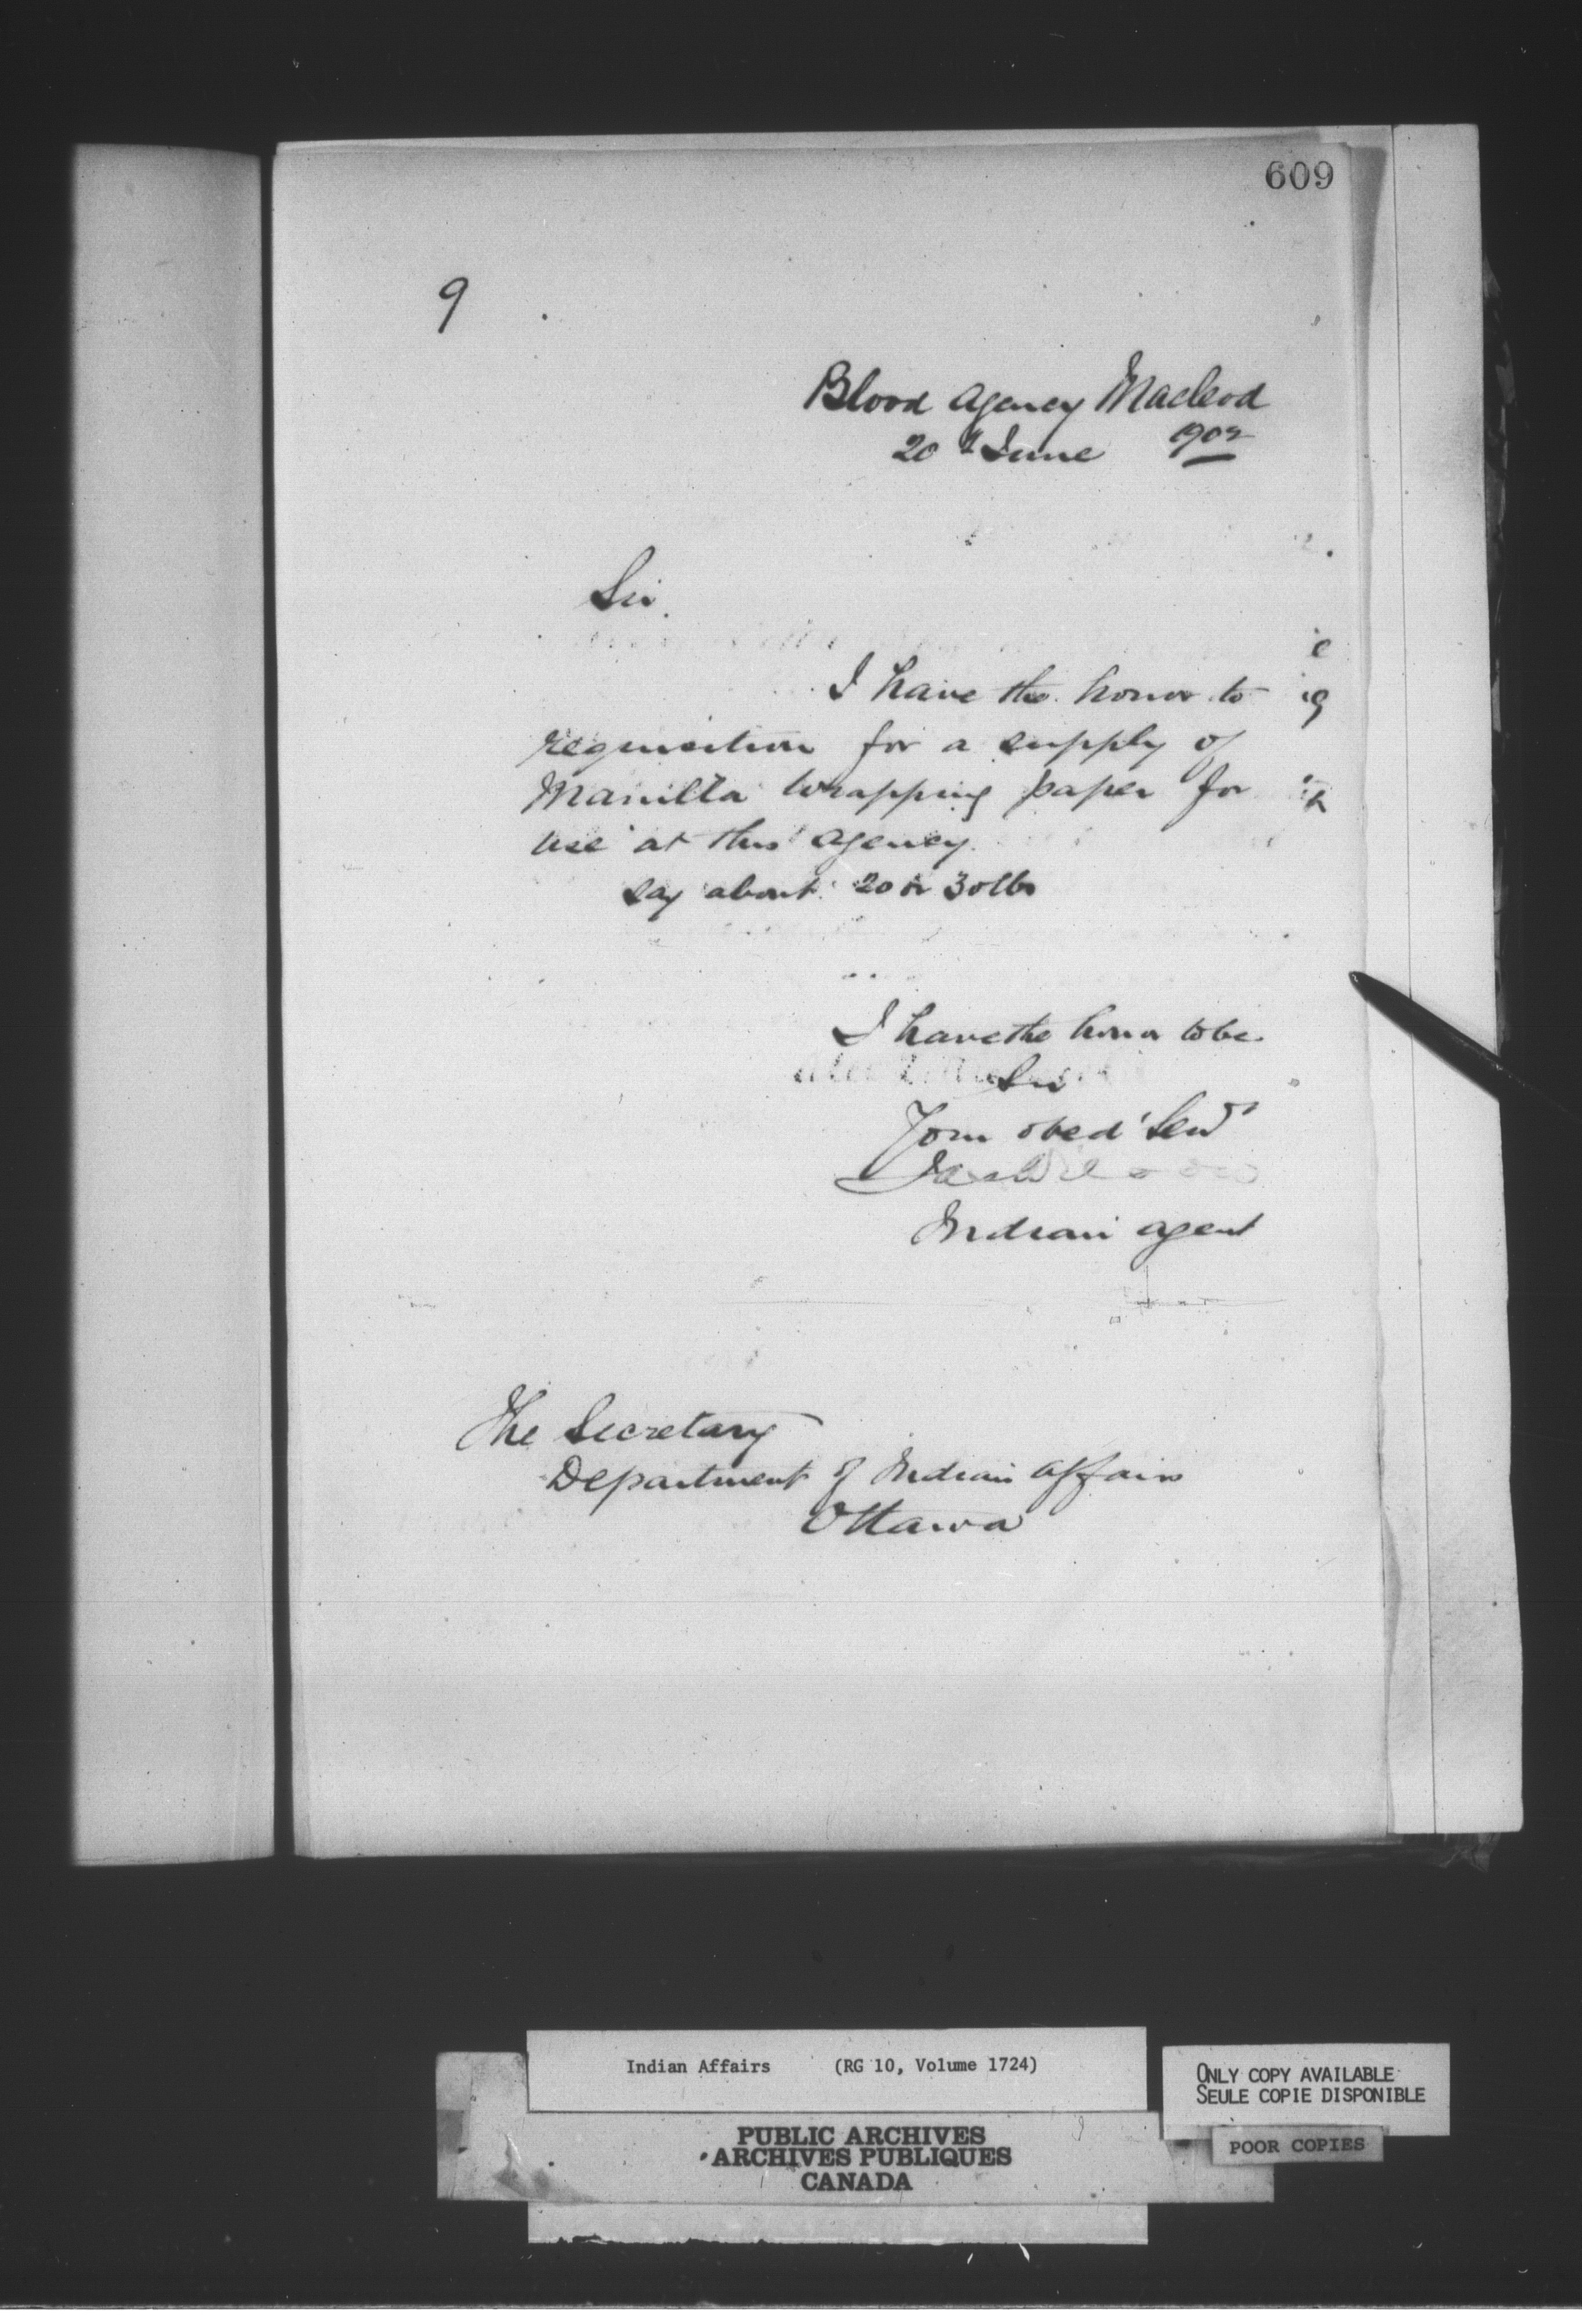 609
9
Blood Agency Macleod
20th June 1902
Sir.
I have the honor to
requisition for a supply of
Manilla wrapping paper for
use at this agency.
say about 20 or 30 lbs
I have the honor to be
Sir
Your obed' Serv'
Jas Wilson
Indian agent
The Secretary
Department of Indian Affairs
Ottawa
Indian Affairs (RG 10, Volume 1724)
PUBLIC ARCHIVES
ARCHIVES PUBLIQUES
CANADA
ONLY COPY AVAILABLE
SEULE COPIE DISPONIBLE
POOR COPIES